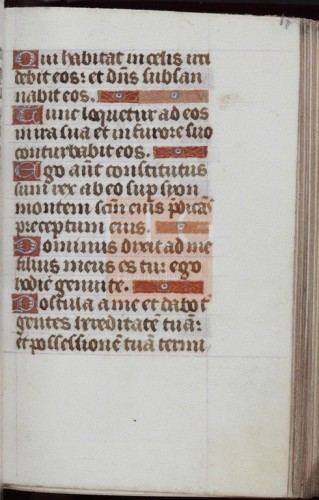 Qui habitat in celis irri
debit eos: et dns subsan
nabit eos.
Tunc loquetur ad eos
in ira sua et in furore suo
conturbabit eos.
Ego aut constitutus
sum rex ab eo sup syon
montem scm eius pdicas
preceptum eius.
Dominus dixit ad me
filius meus es tu: ego
hodie genui te.
Postula a me et dabo t
gentes hereditate tua:
et possessione tua termi